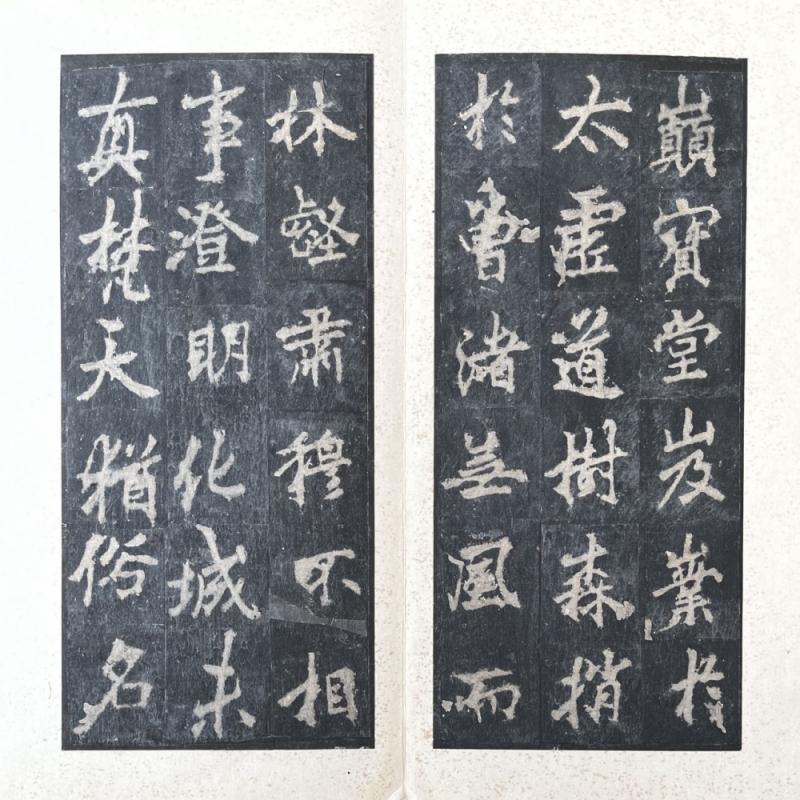 巔寶堂岌嶪於
太虛道樹森捎
於曾渚無風而
林壑肅穆不相
事澄明化城未
真梵天猶俗名